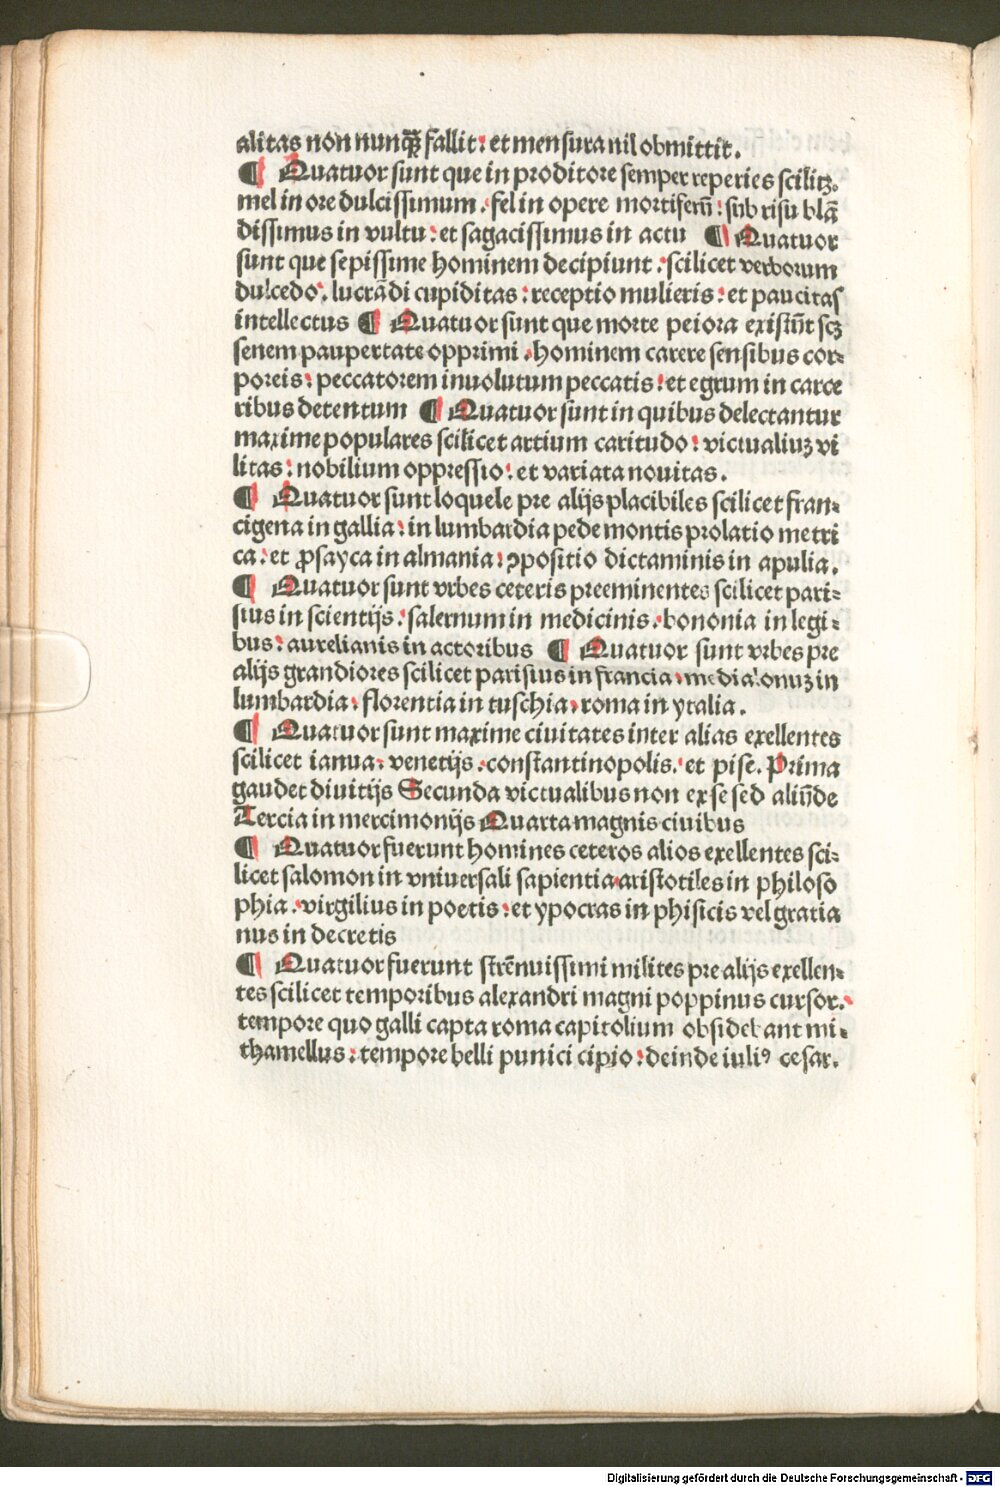 alitas non nunqȝ fallit: et mensura nil obmittit.
¶ Quatuor sunt que in proditore semper reperies scilitꝫ.
mel in ore dulcissimum. fel in opere mortiferū: sub risu blā
dissimus in vultu: et sagacissimus in actu ¶ Quatuor
sunt que sepissime hominem decipiunt. scilicet verborum
dulcedo. lucrādi cupiditas: receptio mulieris: et paucitas
intellectus ¶ Quatuor sunt que morte peiora existūt scꝫ
senem paupertate opprimi. hominem carere sensibus cor-
poreis: peccatorem inuolutum peccatis: et egrum in carce
ribus detentum ¶ Quatuor sunt in quibus delectantur
maxime populares scilicet artium caritudo: victualiuꝫ vi
litas: nobilium oppressio: et variata nouitas.
¶ Quatuor sunt loquele pre alijs placibiles scilicet fran-
cigena in gallia: in lumbardia pede montis prolatio metri
ca: et ꝓsayca in almania: ꝯpositio dictaminis in apulia.
¶ Quatuor sunt vrbes ceteris preeminentes scilicet pari-
sius in scientijs: salernum in medicinis. bononia in legi-
bus: aurelianis in actoribus ¶ Quatuor sunt vrbes pre
alijs grandiores scilicet parisius in francia. mediolonuꝫ in
lumbardia. florentia in tuschia. roma in ytalia.
¶ Quatuor sunt maxime ciuitates inter alias exellentes
scilicet ianua: venetijs. constantinopolis. et pise. Prima
gaudet diuitijs Secunda victualibus non ex se sed aliūde
Tercia in mercimonijs Quarta magnis ciuibus
¶ Quatuor fuerunt homines ceteros alios exellentes sci-
licet salomon in vniuersali sapientia aristotiles in philoso
phia. virgilius in poetis: et ypocras in phisicis vel gratia
nus in decretis
¶ Quatuor fuerunt strēnuissimi milites pre alijs exellen-
tes scilicet temporibus alexandri magni poppinus cursor.
tempore quo galli capta roma capitolium obsidebant mi-
thamellus: tempore belli punici cipio: deinde iuliꝰ cesar.
Digitalisierung gefördert durch die Deutsche Forschungsgemeinschaft - DFG